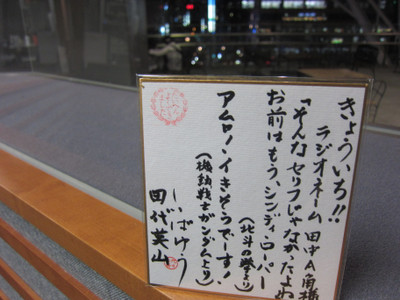 きょういち!!
ラジオネーム 田中A角様
「そんなセリフじゃなかったよね」
お前はもう、シンディ・ローパー
(北斗の拳より)
アムロ!イきそうでーす!
(機動戦士ガンダムより)
しばざきゆう
田代英山